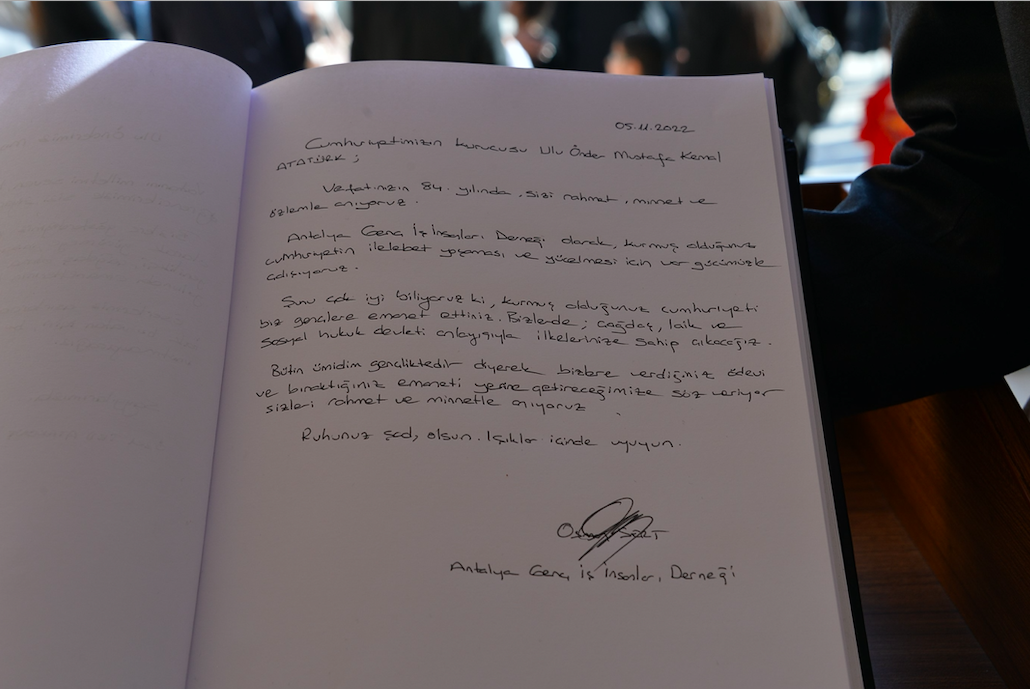 05.11.2022
Cumhuriyetimizin kurucusu Ulu Önder Mustafa Kemal
ATATÜRK ;
Vefatınızın 84. yılında, sizi rahmet, minnet ve
özlemle anıyoruz.
Antalya Genç İş İnsanları Derneği olarak, kurmuş olduğunuz
cumhuriyetin ilelebet yaşaması ve yücelmesi için var gücümüzle
çalışıyoruz.
Şunu çok iyi biliyoruz ki, kurmuş olduğunuz cumhuriyeti
biz gençlere emanet ettiniz. Bizlerde; çağdaş, laik ve
sosyal hukuk devleti anlayışıyla ilkelerinize sahip çıkacağız.
Bütün ümidim gençliktedir diyerek bizlere verdiğiniz ödevi
ve bıraktığınız emaneti yerine getireceğimize söz veriyor
sizleri rahmet ve minnetle anıyoruz
Ruhunuz şad, olsun. Işıklar içinde uyuyun.
Antalya Genç İş İnsanları Derneği